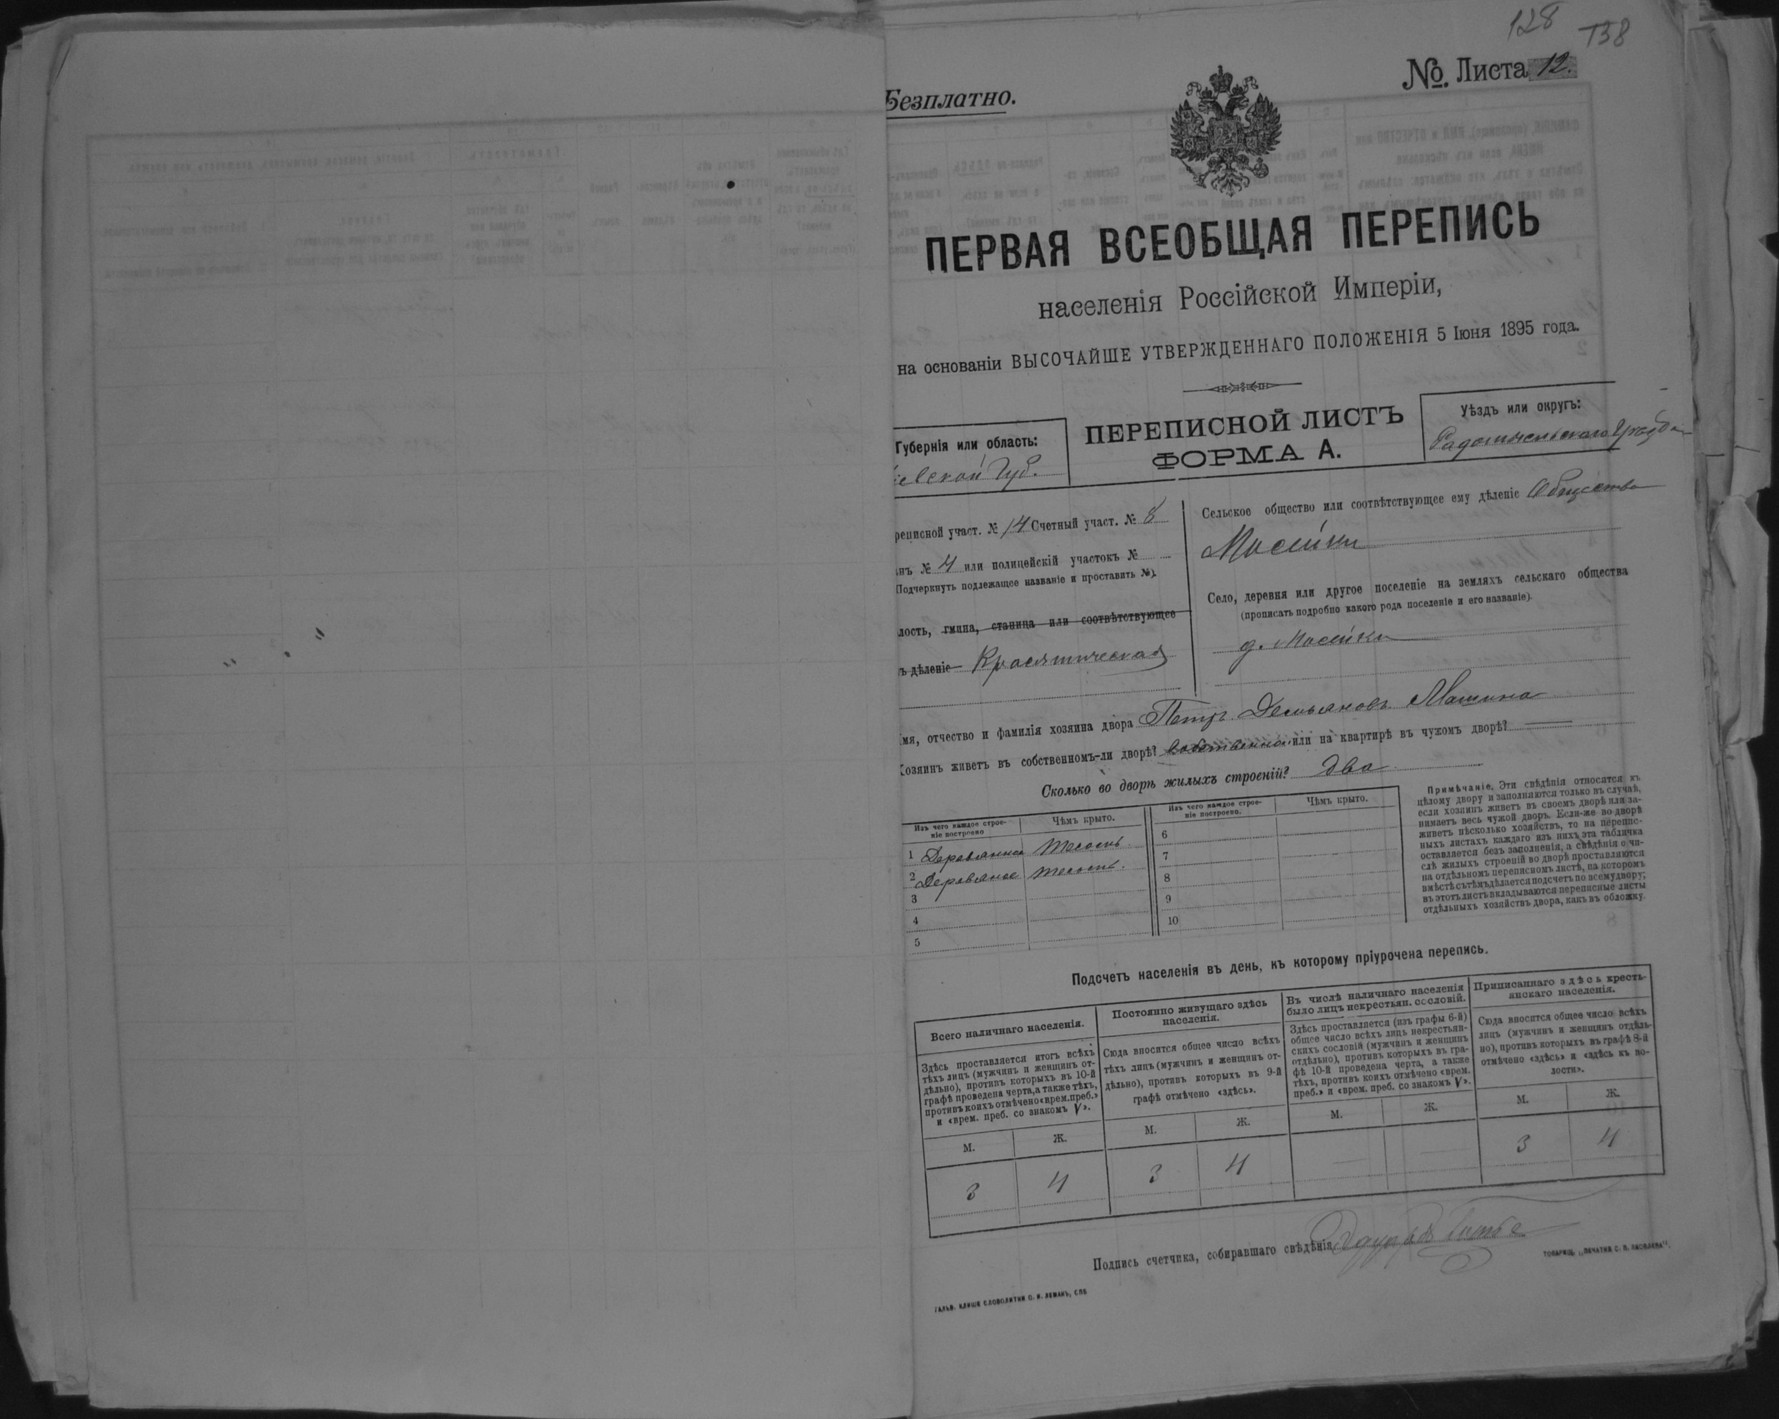 128 138
Безплатно.
№. Листа 12.
ПЕРВАЯ ВСЕОБЩАЯ ПЕРЕПИСЬ
населенія Россійской Имперіи,
на основаніи ВЫСОЧАЙШЕ УТВЕРЖДЕННАГО ПОЛОЖЕНІЯ 5 Іюня 1895 года.
Губернія или область:
ПЕРЕПИСНОЙ ЛИСТЪ
ФОРМА А.
Уѣздъ или округъ:
евской Губ.
Радомысльскаго Уѣзда
реписной участ. № 14 Счетный участ. № 8
нъ № 4 или полицейскій участокъ №
Подчеркнуть подлежащее названіе и проставить №).
лость, гмина, станица или соотвѣтствующее
ъ дѣленіе Красятическая
Сельское общество или соотвѣтствующее ему дѣленіе Общество
Масейки
Село, деревня или другое поселеніе на земляхъ сельскаго общества
(прописать подробно какого рода поселеніе и его названіе).
д. Масейки
мя, отчество и фамилія хозяина двора Петръ Демьяновъ
Хозяинъ живетъ въ собственномъ-ли дворѣ? собственно или на квартирѣ въ чужомъ дворѣ?
Сколько во дворѣ жилыхъ строеній? два
Изъ чего каждое строе-
ніе построено
Чѣмъ крыто.
Изъ чего каждое строе-
ніе построено.
Чѣмъ крыто.
1 Деревянное тесомъ
2 Деревяное тесомъ.
3
4
5
6
7
8
9
10
Примѣчаніе. Эти свѣдѣнія относятся къ
цѣлому двору и заполняются только въ случаѣ,
если хозяинъ живетъ въ своемъ дворѣ или за-
нимаетъ весь чужой дворъ. Если-же во дворѣ
живетъ нѣсколько хозяйствъ, то на перепис-
ныхъ листахъ каждаго изъ нихъ эта табличка
оставляется безъ заполненія, а свѣдѣнія о чи-
слѣ жилыхъ строеній во дворѣ проставляются
на отдѣльномъ переписномъ листѣ, на которомъ
вмѣстѣ съ тѣмъ дѣлается подсчетъ по всему двору;
въ этотъ листъ вкладываются переписные листы
отдѣльныхъ хозяйствъ двора, какъ въ обложку.
Подсчетъ населенія въ день, къ которому пріурочена перепись.
Всего наличнаго населенія.
Здѣсь проставляется итогъ всѣхъ
тѣхъ лицъ (мужчинъ и женщинъ от-
дѣльно), противъ которыхъ въ 10-й
графѣ проведена черта, а также тѣхъ,
противъ коихъ отмѣчено «врем. преб.»
и «врем. преб. со знакомъ V».
М. Ж.
3 4
Постоянно живущаго здѣсь
населенія.
Сюда вносится общее число всѣхъ
тѣхъ лицъ (мужчинъ и женщинъ от-
дѣльно), противъ которыхъ въ 9-й
графѣ отмѣчено «здѣсь».
М. Ж.
3 4
Въ числѣ наличнаго населенія
было лицъ некрестьян. сословій.
Здѣсь проставляется (изъ графы 6-й)
общее число всѣхъ лицъ некрестьян-
скихъ сословій (мужчинъ и женщинъ
отдѣльно), противъ которыхъ въ гра-
фѣ 10-й проведена черта, а также
тѣхъ, противъ коихъ отмѣчено «врем.
преб.» и «врем. преб. со знакомъ V».
М. Ж.
Приписаннаго здѣсь кресть-
янскаго населенія.
Сюда вносится общее число всѣхъ
лицъ (мужчинъ и женщинъ отдѣль-
но), противъ которыхъ въ графѣ 8-й
отмѣчено «здѣсь» и «здѣсь къ во-
лости».
М. Ж.
3 4
Подпись счетчика, собиравшаго свѣдѣнія
ГАЛЬВ. КЛИШЕ СЛОВОЛИТНИ О. И. ЛЕМАНЪ, СПБ.
ТОВАРИЩ. „ПЕЧАТНЯ С. П. ЯКОВЛЕВА".